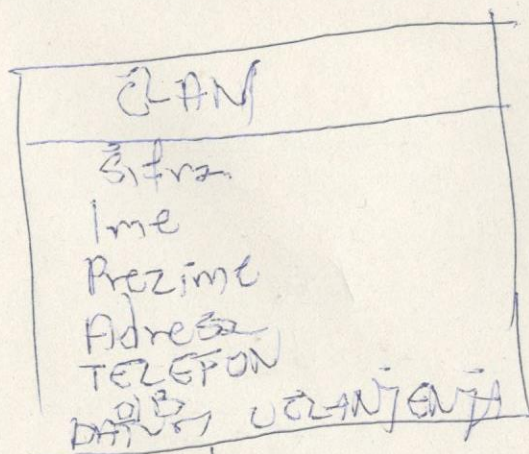 ČLAN
Šifra
Ime
Prezime
Adresa
TELEFON
OIB
DATUM UČLANJENJA